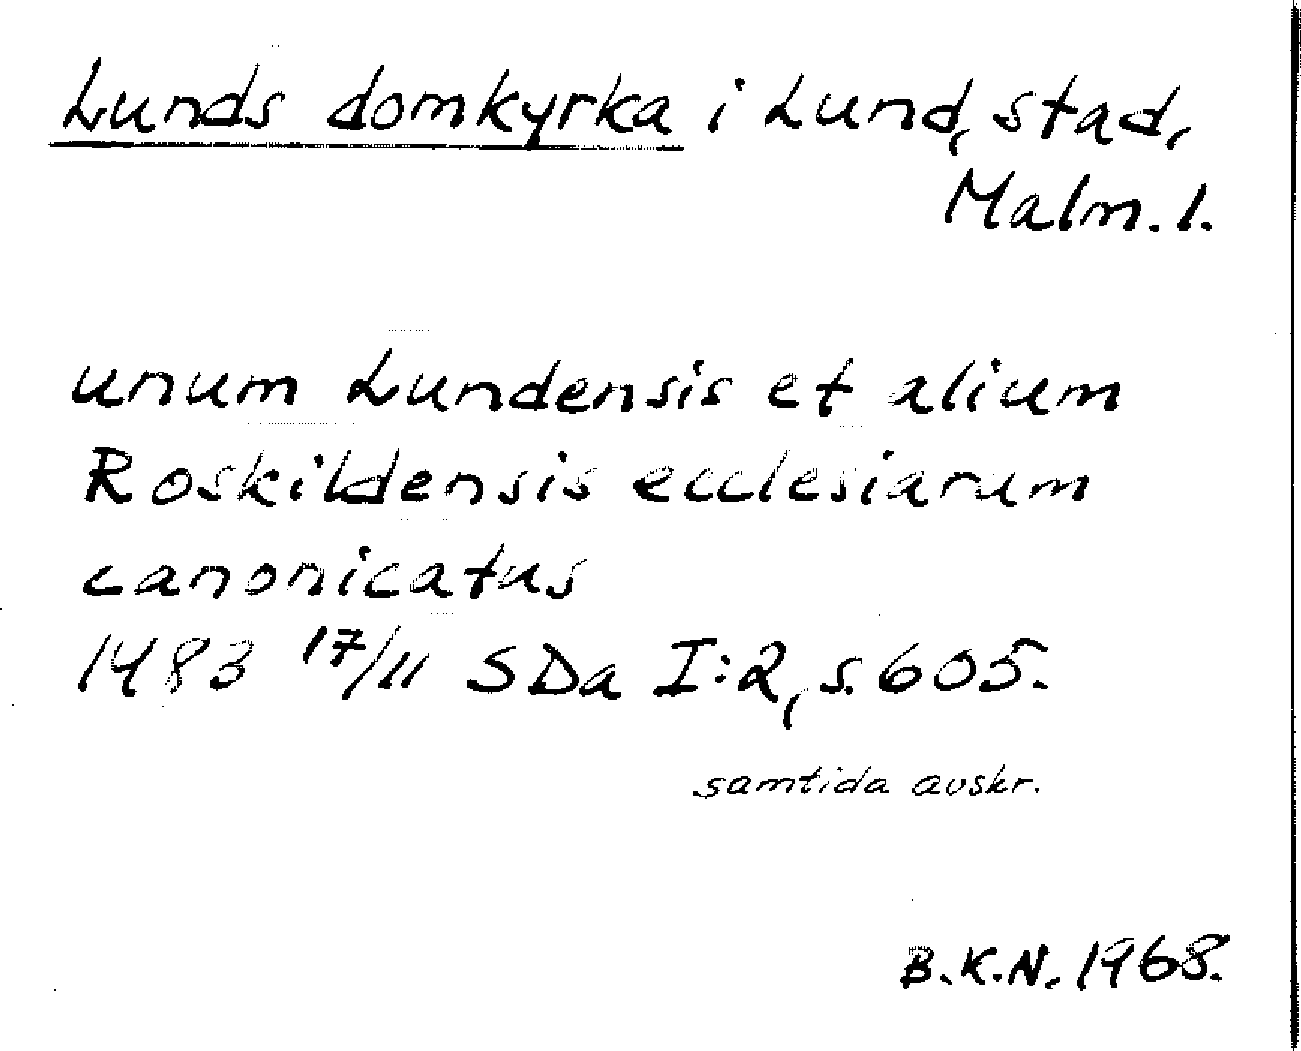 Lunds domkyrka i Lund, stad,
Malm. l.
unum Lundensis et alium
Roskildensis ecclesiarum
canonicatus
1483 17/11 SDa I:2, s. 605.
samtida avskr.
B.K.N. 1968.